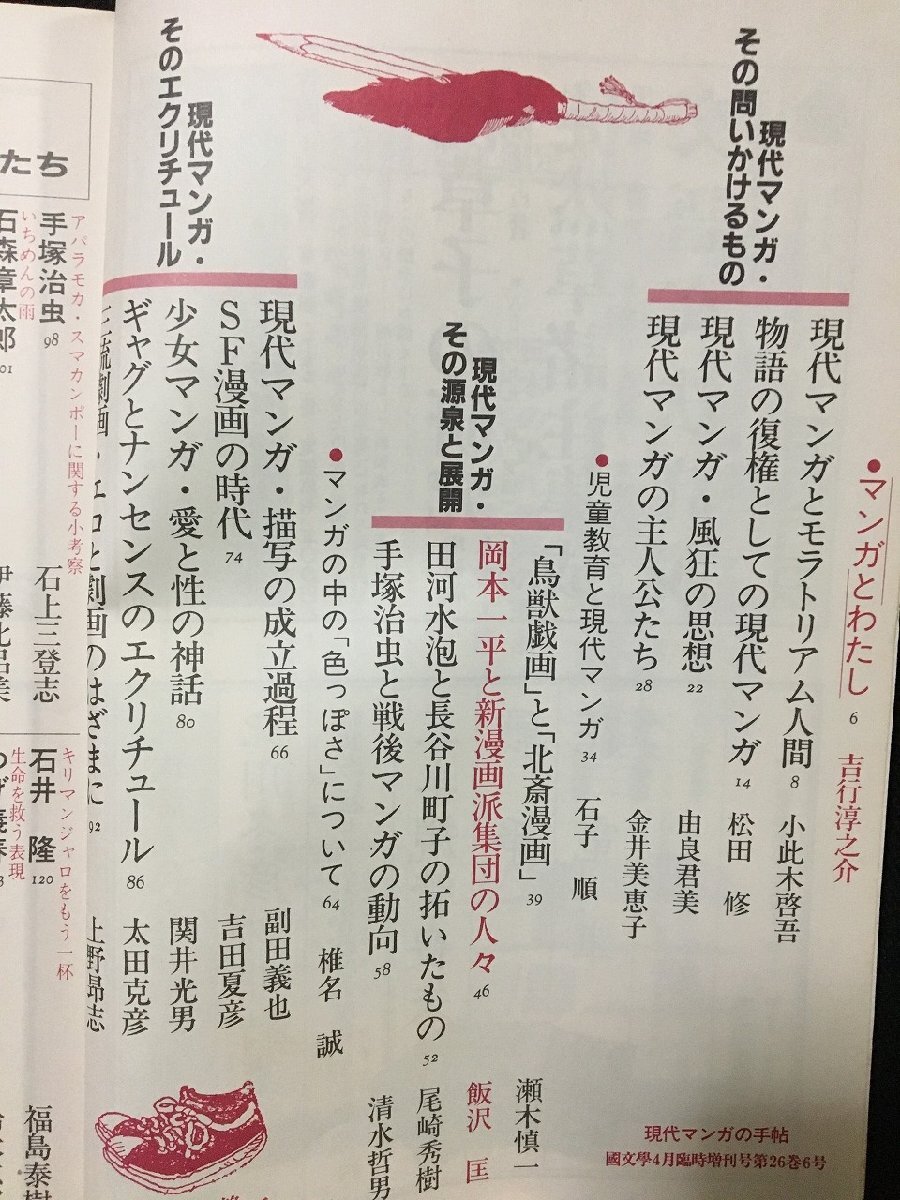 ●マンガとわたし 6 吉行淳之介
現代マンガ・
その問いかけるもの
現代マンガとモラトリアム人間 8 小此木啓吾
物語の復権としての現代マンガ 14 松田 修
現代マンガ・風狂の思想 22 由良君美
現代マンガの主人公たち 28 金井美恵子
●児童教育と現代マンガ 34 石子 順
現代マンガ・
その源泉と展開
「鳥獣戯画」と「北斎漫画」 39 瀬木慎一
岡本一平と新漫画派集団の人々 46 飯沢 匡
田河水泡と長谷川町子の拓いたもの 52 尾崎秀樹
手塚治虫と戦後マンガの動向 58 清水哲男
●マンガの中の「色っぽさ」について 64 椎名 誠
現代マンガ・
そのエクリチュール
現代マンガ・描写の成立過程 66 副田義也
SF漫画の時代 74 吉田夏彦
少女マンガ・愛と性の神話 80 関井光男
ギャグとナンセンスのエクリチュール 86 太田克彦
劇画・エロと劇画のはざまに 92 上野昻志
現代マンガの手帖
國文學4月臨時増刊号第26巻6号
たち
アパラモカ・スマカンポーに関する小考察
手塚治虫 98 石上三登志
いちめんの雨
石森章太郎
キリマンジャロをもう一杯
石井 隆 120 福島泰樹
生命を救う表現